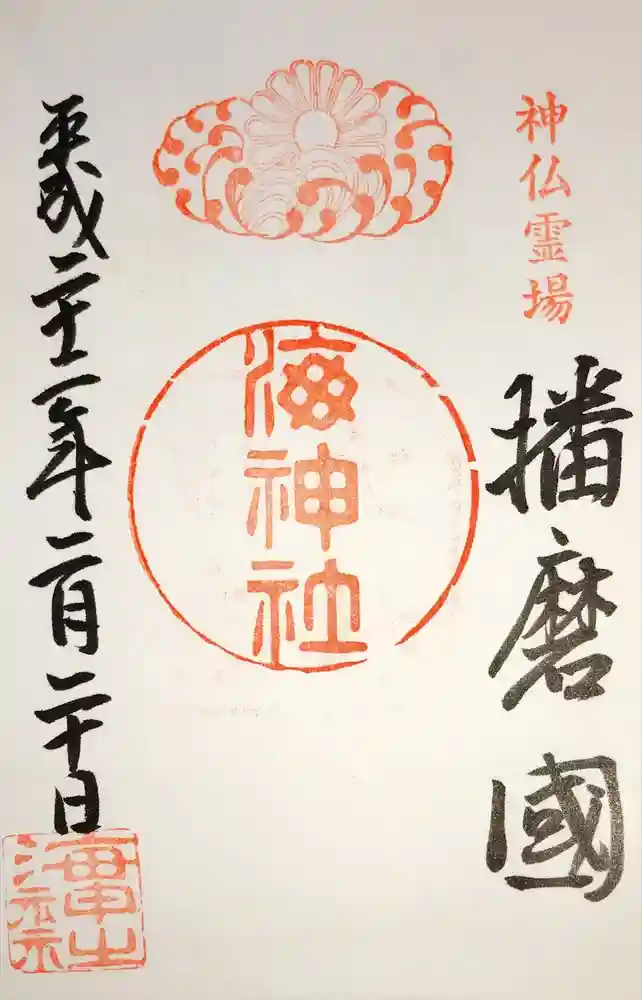 神仏霊場
播磨國
海神社
平成二十二年二月二十日
海神社